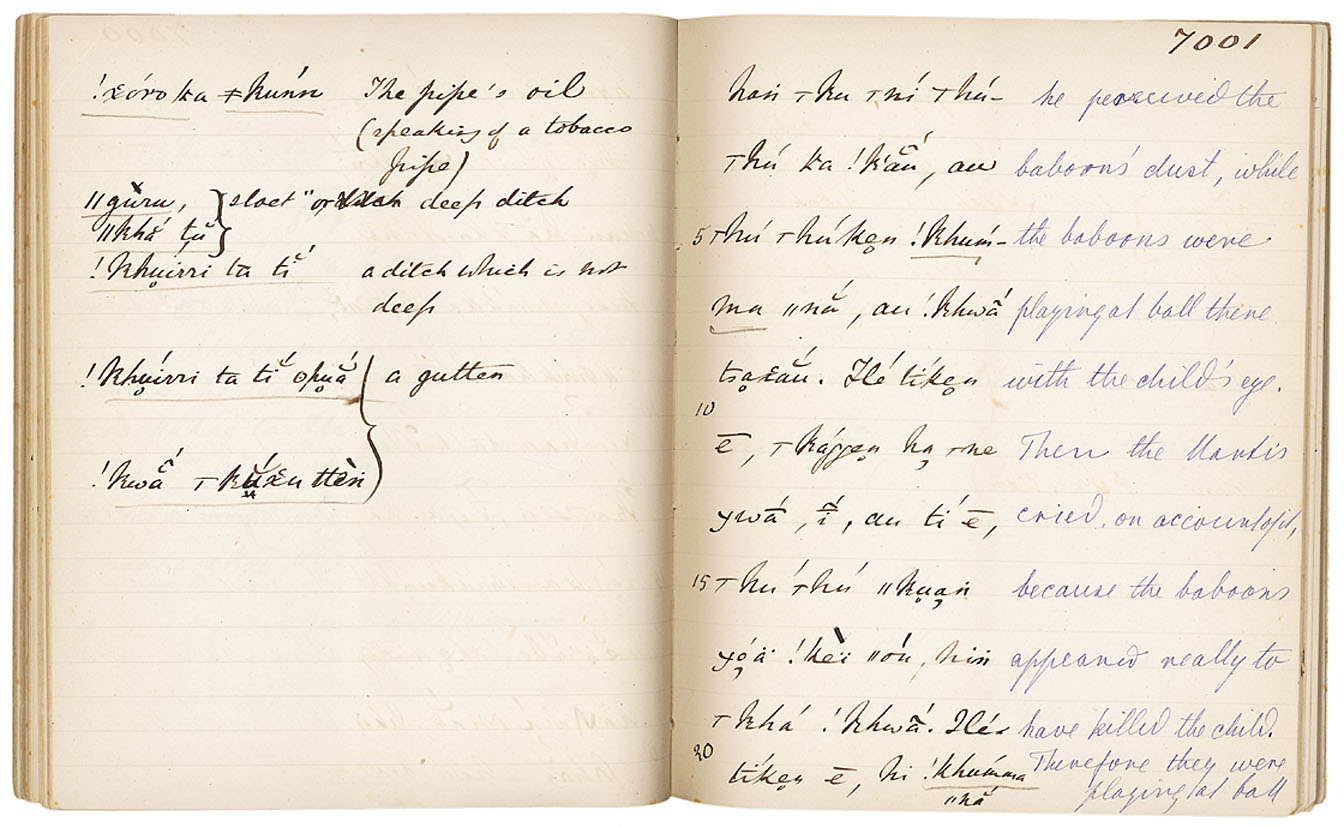 !xóro ka ǂkúnn The pipe's oil
(speaking of a tobacco
pipe)
ǁgùru, } sloot" or deep ditch
ǁkhá tṵ̆
!khuírri ta tí a ditch which is not
deep
!khuírri ta tí opuá } a gutter
!kwã́
7001
haṅ ǀku ǀní ǀhú- he perceived the
ǀhú ka !k'ãũ, au baboons' dust, while
5 ǀhú ǀhúken !khúm- the baboons were
ma ǁnă, au !khwã́ playing at ball there
tsaxáu. Hé tíken with the child's eye.
10
ē, ǀkággen ha ǀne Then the Mantis
ywā́, ī́, au tí ē, cried, on account of it,
15 ǀhú ǀhú ǁkuaṅ because the baboons
yóä !kèï ǁóu, hiṅ appeared really to
ǀkhá !khwã́. Hé have killed the child.
20
tíken ē, hi !khúmma Therefore they were
ǁnă playing at ball